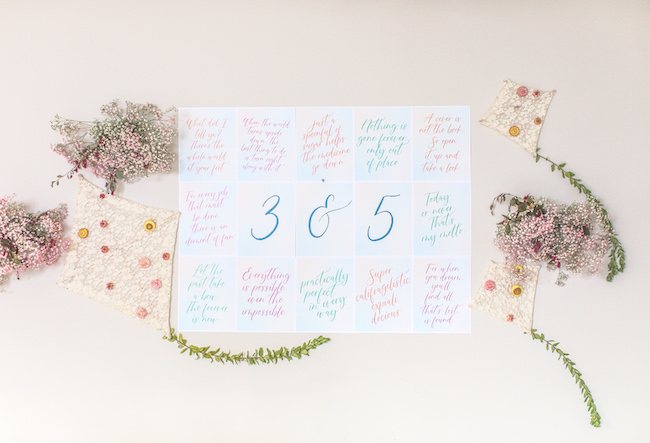 What did I
tell you?
There's the
whole world
at your feet
When the world
turns upside
down, the
best thing to do
is turn right
along with it.
just a
spoonful of
sugar helps
the medicine
go down
Nothing is
gone forever
only out
of place
A cover is
not the book
So open
it up and
take a look
In every job
that must
be done
there is an
element of fun
3
&
5
Today
or never
That's
my motto
Let the
past take
a bow
The forever
is now
Everything
is possible
even the
impossible
practically
perfect
in every
way
Super
califragilistic
expiali
docious
For when
you
you'll
find all
that's lost
is found